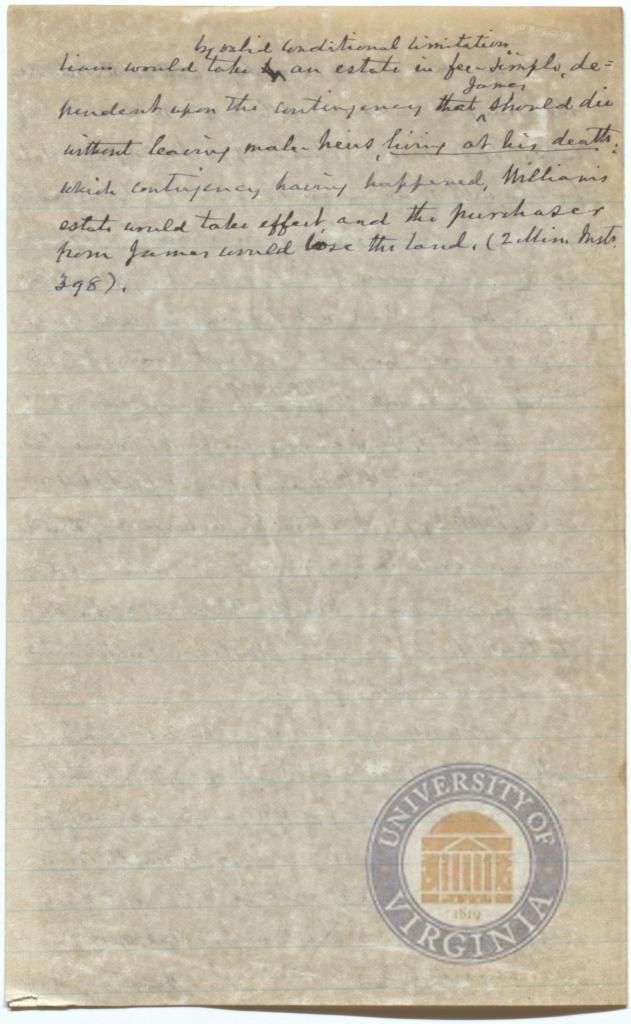 by valid conditional limitation,
liam would take an estate in fee-simple, de=
James
pendent upon the contingency that should die
without leaving male-heirs living at his death;
which contingency having happened, William's
estate would take effect, and the purchaser
from James would lose the land. (2 Min. Insts.
398).
UNIVERSITY OF
VIRGINIA
1819